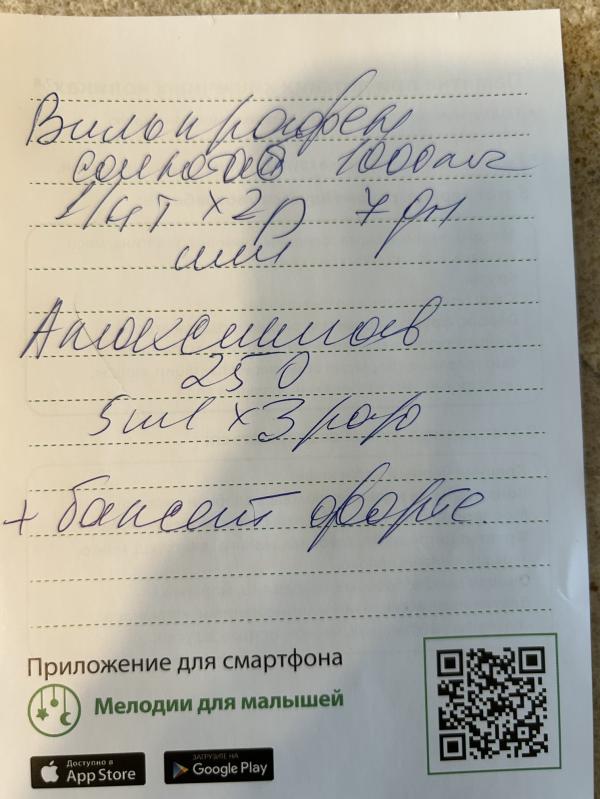 Вильпрафен
солютаб 1000 мг
1/4 т х 2р 7 дн
или
Амоксиклав
250
5 ml x 3 р
+ баксет форте
Приложение для смартфона
Мелодии для малышей
Доступно в
App Store
ЗАГРУЗИТЕ НА
Google Play